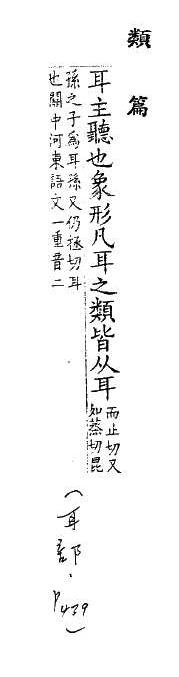 類篇
耳主聽也象形凡耳之類皆从耳
而止切又
如蒸切昆
孫之子爲耳孫又仍拯切耳
也關中河東語文一重音二
(耳部,P439)